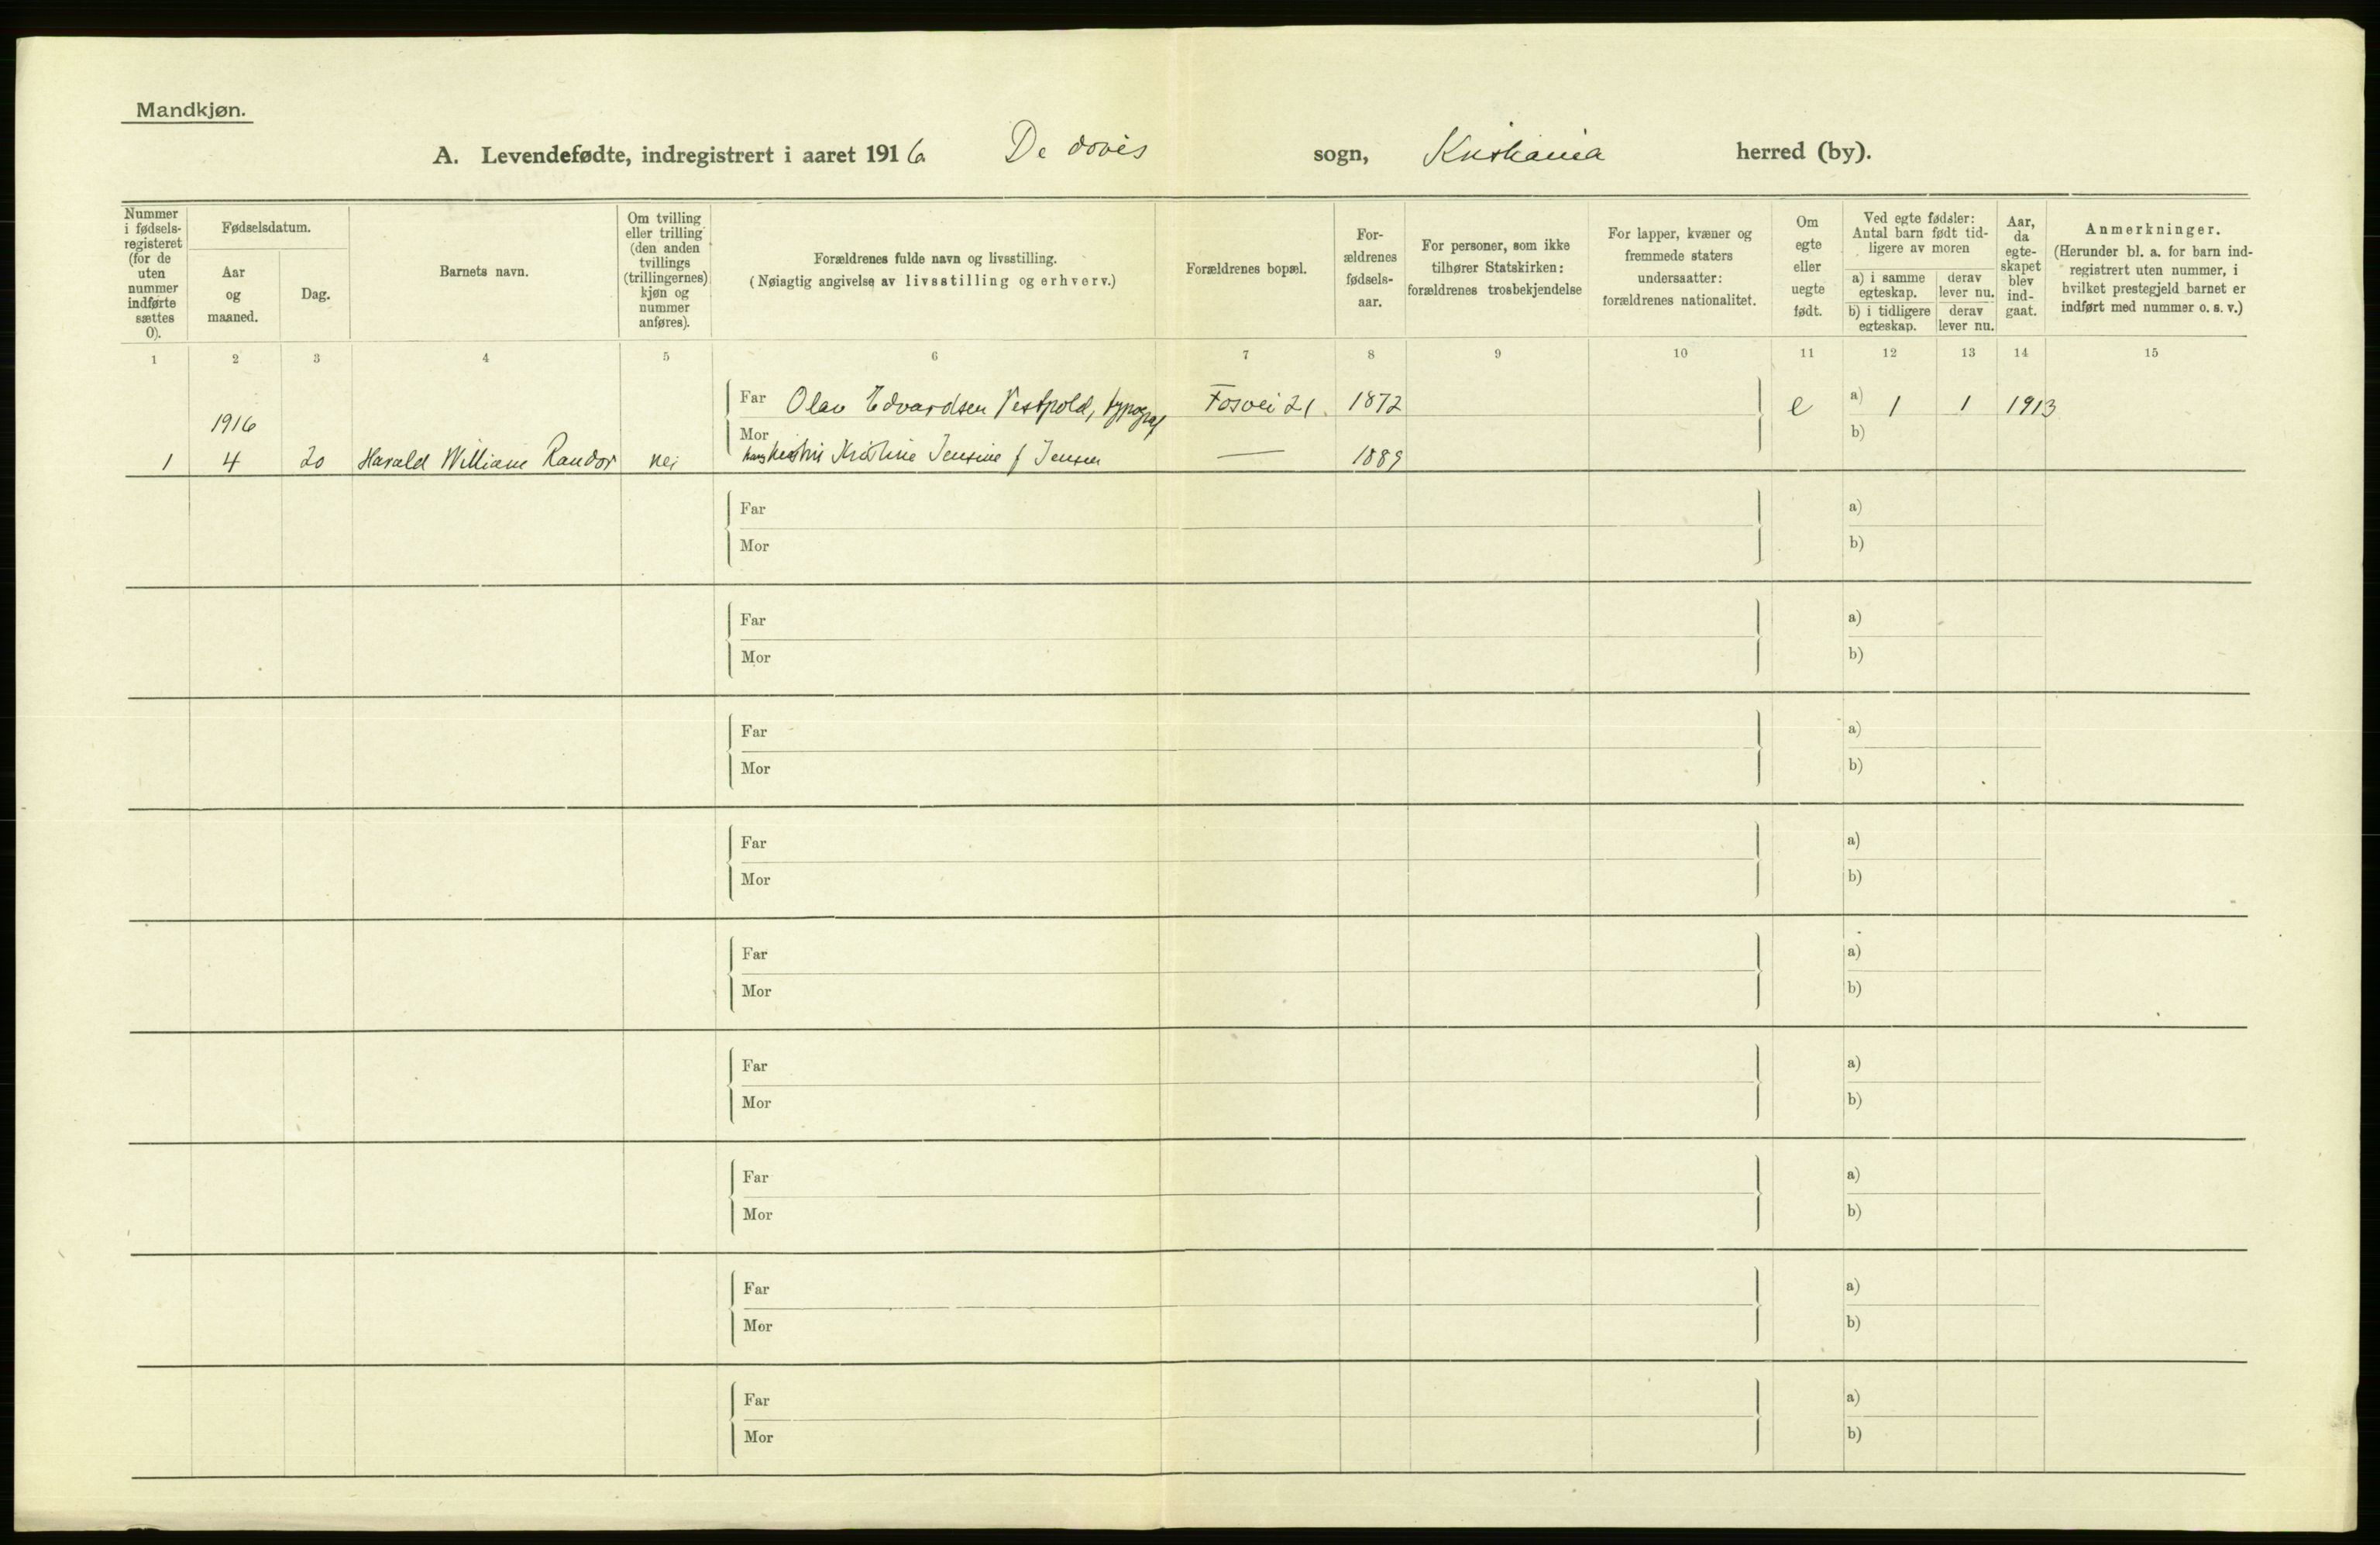 Mandkjøn.
A. Levendefødte, indregistrert i aaret 1916 De døves sogn, Kristiania herred (by).
Nummer i fødsels-registeret (for de uten nummer indførte sættes 0).
Fødselsdatum.
Aar og maaned.
Dag.
Barnets navn.
Om tvilling eller trilling (den anden tvillings (trillingernes) kjøn og nummer anføres).
Forældrenes fulde navn og livsstilling.
(Nøiagtig angivelse av livsstilling og erhverv.)
Forældrenes bopæl.
For-ældrenes fødsels-aar.
For personer, som ikke tilhører Statskirken: forældrenes trosbekjendelse
For lapper, kvæner og fremmede staters undersaatter: forældrenes nationalitet.
Om egte eller uegte født.
Ved egte fødsler: Antal barn født tid-ligere av moren
a) i samme egteskap.
derav lever nu.
b) i tidligere egteskap.
derav lever nu.
Aar, da egte-skapet blev ind-gaat.
Anmerkninger.
(Herunder bl. a. for barn ind-registrert uten nummer, i hvilket prestegjeld barnet er indført med nummer o. s. v.)
1 2 3 4 5 6 7 8 9 10 11 12 13 14 15
Far Olav Edvardsen Vestpold, typograf Fosvei 21. 1872 e a) 1 1 1913
1916
Mor b)
1 4 20 Harald William Randor nei Kristine Jensine f Jensen — 1889
Far a)
Mor b)
Far a)
Mor b)
Far a)
Mor b)
Far a)
Mor b)
Far a)
Mor b)
Far a)
Mor b)
Far a)
Mor b)
Far a)
Mor b)
Far a)
Mor b)